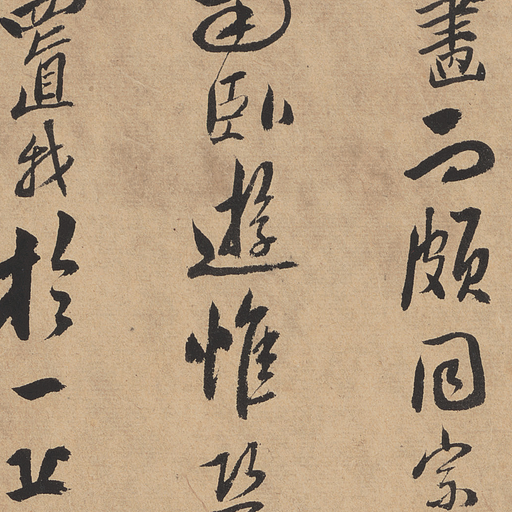 畫而頗同宗
臥遊惟恐
置我於一丘